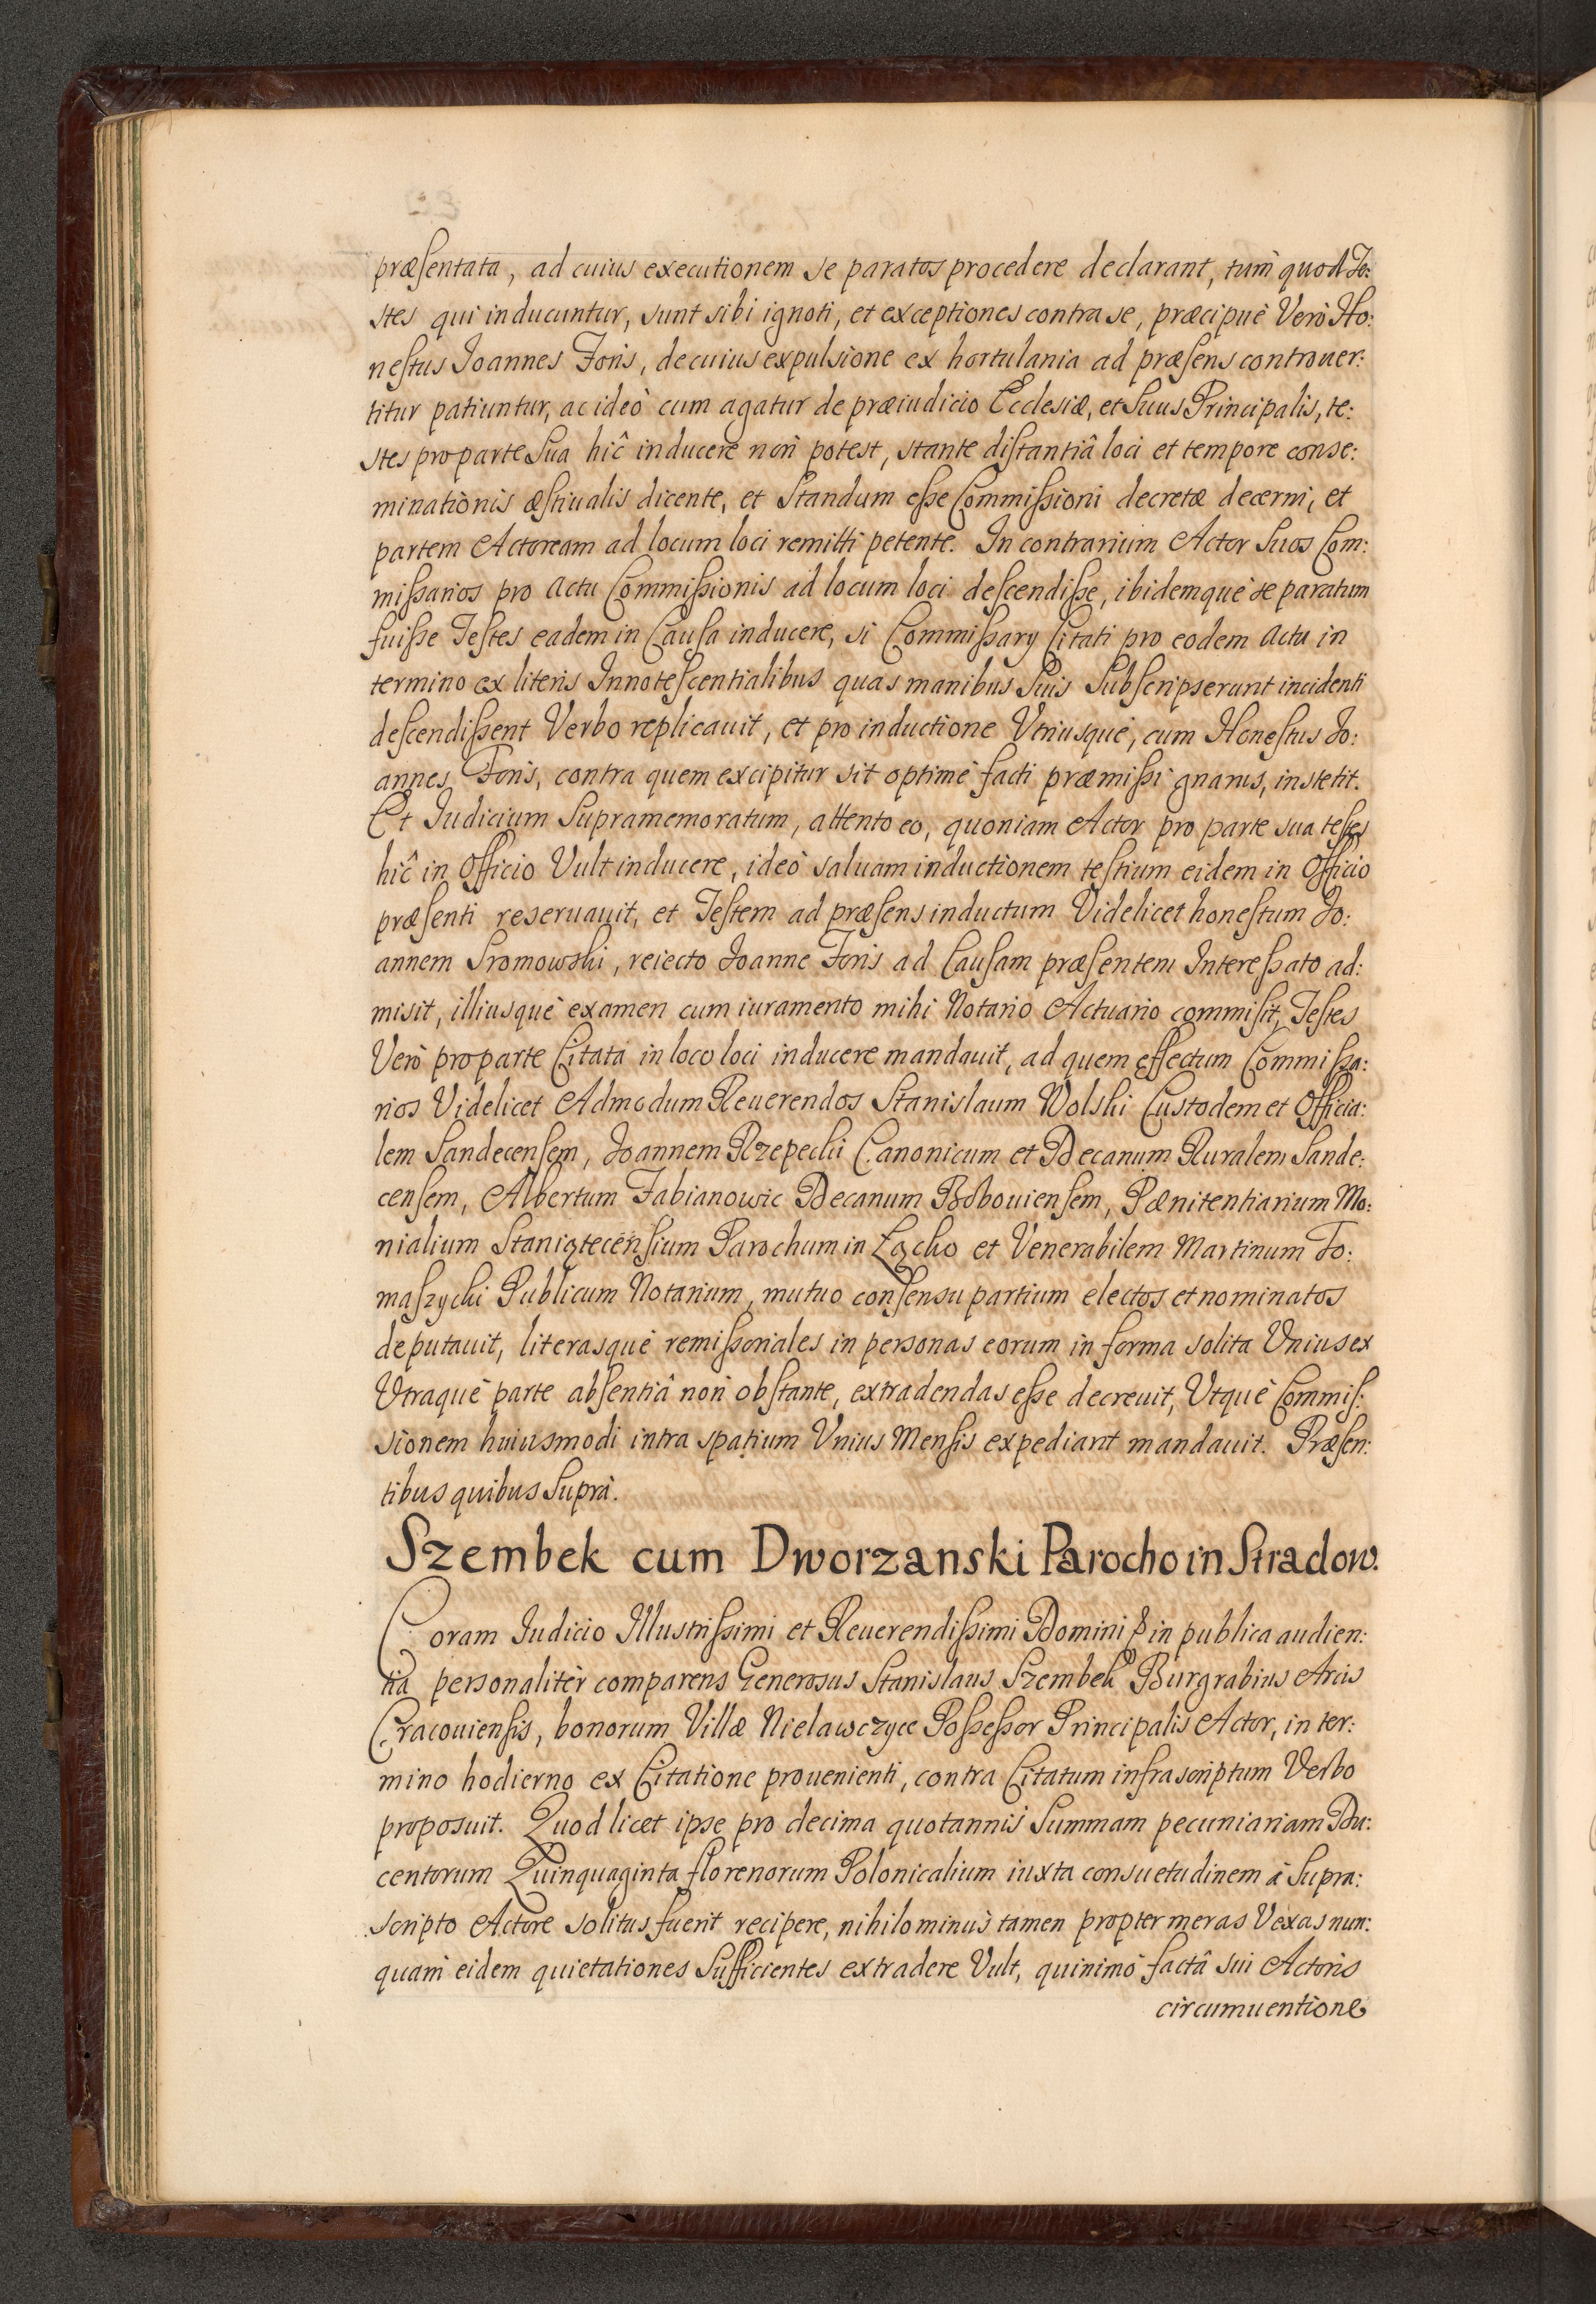 præsentata, ad cuius executionem se paratos procedere declarant, tum quod Te:
stes qui inducuntur, sunt sibi ignoti, et exceptiones contra se, præcipuè Verò Ho:
nestus Joannes Foris, de cuius expulsione ex hortulania ad præsens controuer:
titur patiuntur, ac ideò cum agatur de præiudicio Ecclesiæ, et Suus Principalis, te:
stes pro parte Sua hîc inducere non potest, stante distantiâ loci et tempore conse:
minationis æstiualis dicente, et Standum esse Commissioni decretæ decerni, et
partem Actoream ad locum loci remitti petente. In contrarium Actor Suos Com:
missarios pro actu Commissionis ad locum loci descendisse, ibidemque se paratum
fuisse Testes eadem in Causa inducere, si Commissary Citati pro eodem actu in
termino ex literis Innotescentialibus quas manibus Suis Subscripserunt incidenti
descendissent Verbo replicauit, et pro inductione Vtriusquè, cum Honestus Jo:
annes Foris, contra quem excipitur sit optimè facti præmissi gnarus, institit.
Et Judicium Supramemoratum, attento eo, quoniam Actor pro parte sua testes
hîc in Officio Vult inducere, ideò saluam inductionem testium eidem in Officio
præsenti reseruauit, et Testem ad præsens inductum Videlicet honestum Jo:
annem Sromowski, reiecto Joanne Foris ad Causam præsentem Interessato ad:
misit, illiusquè examen cum iuramento mihi Notario Actuario commisit, Testes
Verò pro parte Citata in loco loci inducere mandauit, ad quem effectum Commissa:
rios Videlicet Admodum Reuerendos Stanislaum Wolski Custodem et Officia:
lem Sandecensem, Joannem Rzepecki Canonicum et Decanum Ruralem Sande:
censem, Albertum Fabianowic Decanum Bobouiensem, Pænitentiarium Mo:
nialium Staniątecensium Parochum in Łącko et Venerabilem Martinum To:
maszycki Publicum Notarium, mutuo consensu partium electos et nominatos
deputauit, literasquè remissoriales in personas eorum in forma solita Vnius ex
Vtraquè parte absentiâ non obstante, extradendas esse decreuit, Vtquè Commis:
sionem huiusmodi intra spatium Vnius Mensis expediant mandauit. Præsen:
tibus quibus Suprà.
Szembek cum Dworzanski Parocho in Stradow.
Coram Judicio Illustrissimi et Reuerendissimi Domini & in publica audien:
tia personalitèr comparens Generosus Stanislaus Szembek Burgrabius Arcis
Cracouiensis, bonorum Villæ Nielawczyce Possessor Principalis Actor, in ter:
mino hodierno ex Citatione prouenienti, contra Citatum infrascriptum Verbo
proposuit. Quod licet ipse pro decima quotannis Summam pecuniariam Du:
centorum Quinquaginta florenorum Polonicalium iuxta consuetudinem à Supra:
scripto Actore solitus fuerit recipere, nihilominus tamen propter meras Vexas nun:
quam eidem quietationes Sufficientes extradere Vult, quinimò factâ sui Actoris
circumuentione